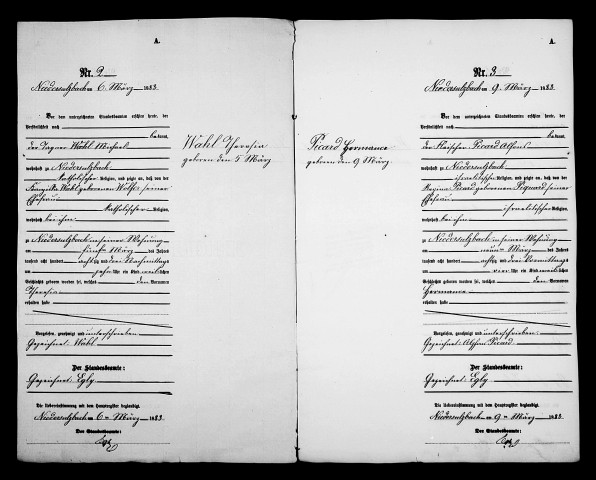 A.
Nr. 2
Niedersulzbach am 6. März 1883
Vor dem unterzeichneten Standesbeamten erschien heute, der
Persönlichkeit nach
bekannt,
der Tagner Wahl Michael
wohnhaft zu Niedersulzbach
katholischer Religion, und zeigte an, daß von der
Wahl geborenen Wolff seiner
Ehefrau
katholischer Religion
wohnhaft bei ihm
zu Niedersulzbach in seiner Wohnung
am fünften März des Jahres
tausend acht hundert achtzig und drei Nachmittags
um zehn Uhr ein Kind weiblichen
Geschlechts geboren worden sei, welches den Vornamen
Theresia
erhalten habe
Vorgelesen, genehmigt und unterschrieben
Gezeichnet: Wahl
Der Standesbeamte:
Gezeichnet: Egly
Die Uebereinstimmung mit dem Hauptregister beglaubigt.
Niedersulzbach am 6ten März 1883
Der Standesbeamte:
Egly
Wahl Theresia
geboren den 5 März
Picard Hermance
geboren den 9 März
A.
Nr. 3
Niedersulzbach am 9. März 1883
Vor dem unterzeichneten Standesbeamten erschien heute, der
Persönlichkeit nach
bekannt,
der Picard Alfons
wohnhaft zu Niedersulzbach
israelitischer Religion, und zeigte an, daß von der
Regina Picard geborenen Piquard seiner
Ehefrau
israelitischer Religion
wohnhaft bei ihm
zu Niedersulzbach in seiner Wohnung
am neunten März des Jahres
tausend acht hundert achtzig und drei Vormittags
um vier Uhr ein Kind weiblichen
Geschlechts geboren worden sei, welches den Vornamen
Hermance
erhalten habe
Vorgelesen, genehmigt und unterschrieben:
Gezeichnet: Alphons Picard
Der Standesbeamte:
Gezeichnet: Egly
Die Uebereinstimmung mit dem Hauptregister beglaubigt.
Niedersulzbach am 9ten März 1883
Der Standesbeamte:
Egly